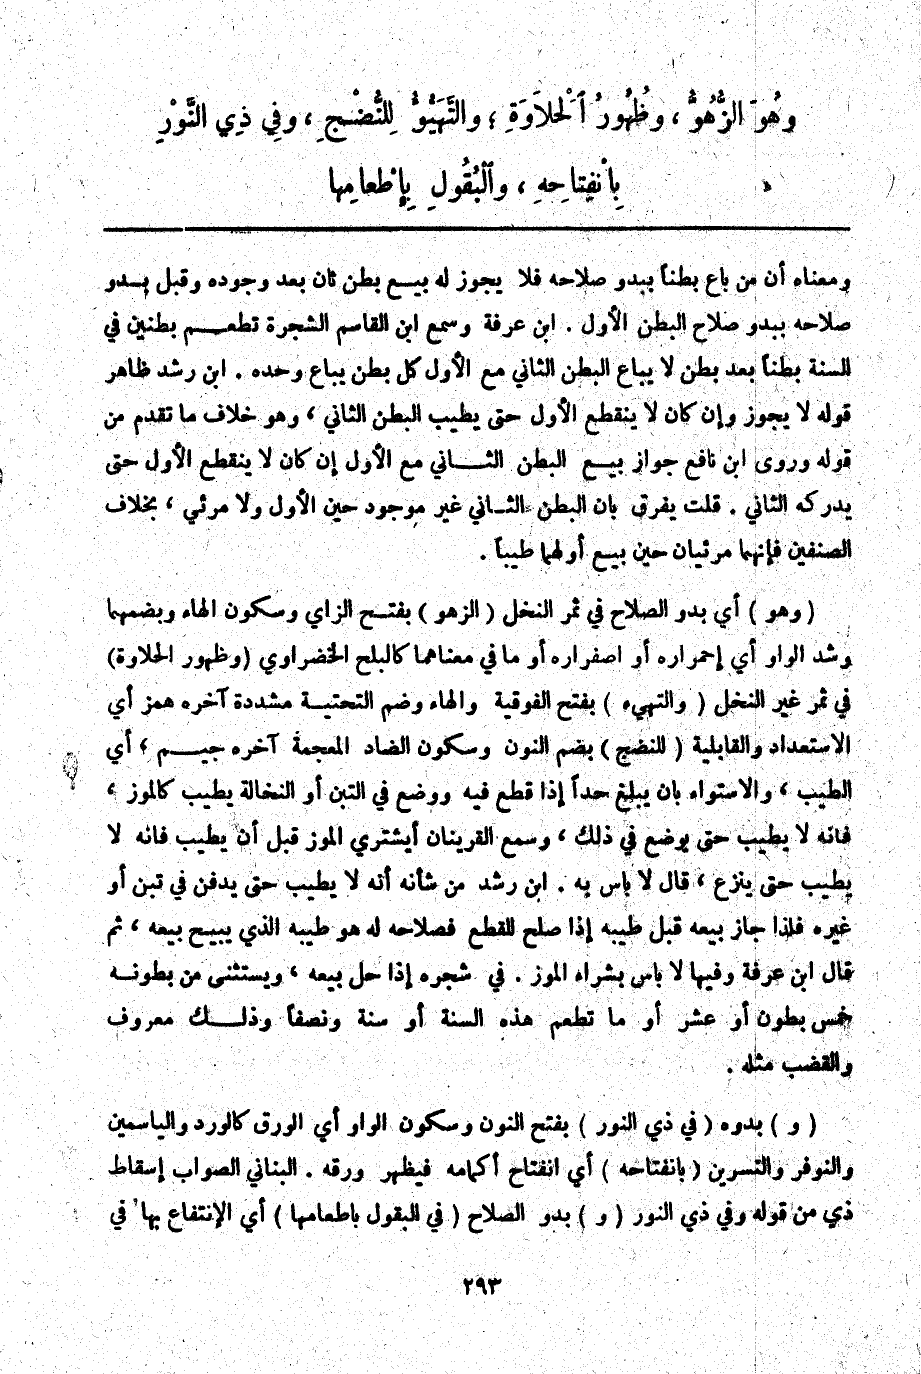 وَهُوَ الزَّهُوُّ ، وَظُهُورُ ٱلْحَلَاوَةِ ؛ والتَّهَيُّؤُ لِلنُّضْجِ ، وفِي ذِي النَّوْرِ
بِانْفِتاحِهِ ، وٱلْبُقُولِ بِإِطْعامِها
ومعناه أن من باع بطناً ببدو صلاحه فلا يجوز له بيـع بطن ثان بعد وجوده وقبل بـدو
صلاحه ببدو صلاح البطن الأول . ابن عرفة وسمع ابن القاسم الشجرة تطعـم بطنين في
السنة بطناً بعد بطن لا يباع البطن الثاني مع الأول كل بطن يباع وحده . ابن رشد ظاهر
قوله لا يجوز وإن كان لا ينقطع الأول حتى يطيب البطن الثاني ، وهو خلاف ما تقدم من
قوله وروى ابن نافع جواز بيـع البطن الثـاني مع الأول إن كان لا ينقطع الأول حتى
يدركه الثاني . قلت يفرق بان البطن الثـاني غير موجود حين الأول ولا مرئي ، بخلاف
الصنفين فإنهما مرئيان حين بيـع أولهما طيباً .
( وهو ) أي بدو الصلاح في ثمر النخل ( الزهو ) بفتـح الزاي وسكون الهاء وبضمهما
وشد الواو أي إحمراره أو اصفراره أو ما في معناهما كالبلح الخضراوي (وظهور الحلاوة)
في ثمر غير النخل ( والتهيء ) بفتح الفوقية والهاء وضم التحتيـة مشددة آخره همز أي
الاستعداد والقابلية ( للنضج ) بضم النون وسكون الضاد المعجمة آخره جيـم ، أي
الطيب ، والاستواء بان يبلغ حداً إذا قطع فيه ووضع في التبن أو النخالة يطيب كالموز ،
فانه لا يطيب حتى يوضع في ذلك ، وسمع القرينان أيشتري الموز قبل أن يطيب فانه لا
يطيب حتى ينزع ، قال لا باس به . ابن رشد من شأنه أنه لا يطيب حتى يدفن في تبن أو
غيره فلذا جاز بيعه قبل طيبه إذا صلح للقطع فصلاحه له هو طيبه الذي يبيـح بيعه ، ثم
قال ابن عرفة وفيها لا باس بشراء الموز . في شجره إذا حل بيعه ، ويستثنى من بطونـه
خمس بطون أو عشر أو ما تطعم هذه السنة أو سنة ونصفاً وذلـك معروف
والقضب مثله .
( و ) بدوه ( في ذي النور ) بفتح النون وسكون الواو أي الورق كالورد والياسمين
والنوفر والتسرين ( بانفتاحه ) أي انفتاح أكمامه فيظهر ورقه . البناني الصواب إسقاط
ذي من قوله وفي ذي النور ( و ) بدو الصلاح ( في البقول باطعامها ) أي الإنتفاع بها في
٢٩٣